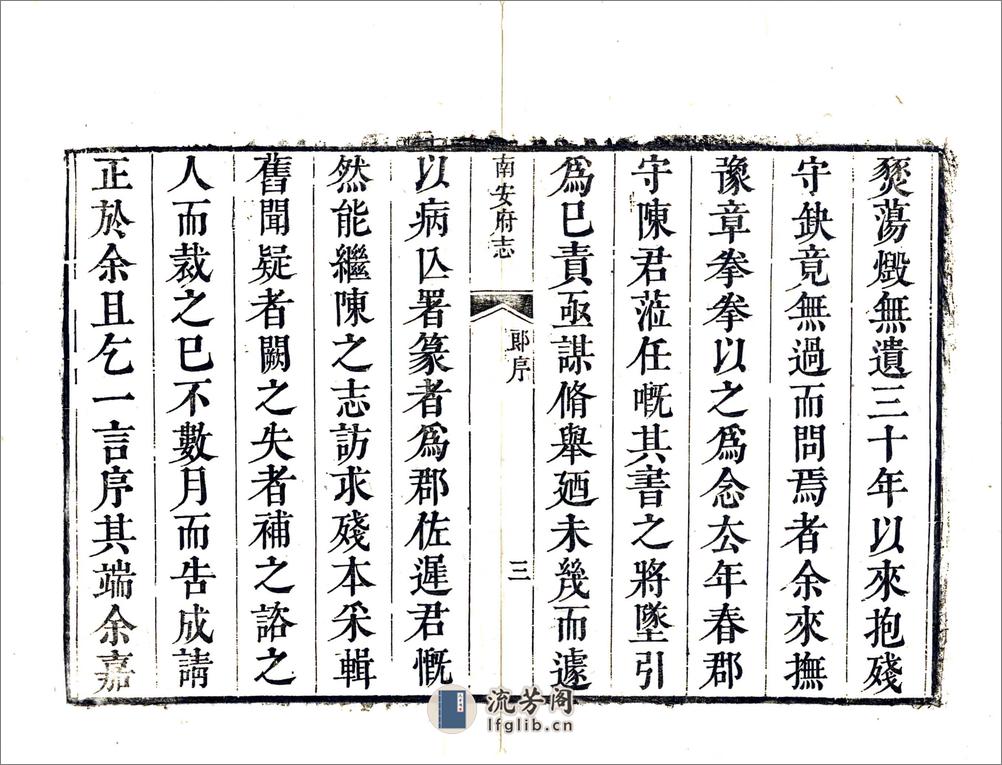 爕蕩燬無遺三十年以來抱殘
守缺竟無過而問焉者余來撫
豫章拳拳以之爲念厺年春郡
守陳君蒞任嘅其書之將墜引
爲巳責亟謀脩舉廼未幾而遽
南安府志
郞序
三
以病仄署篆者爲郡佐遲君慨
然能繼陳之志訪求殘本采輯
舊聞疑者闕之失者補之諮之
人而裁之巳不數月而告成請
正於余且乞一言序其端余嘉
流芳阁
lfglib.cn